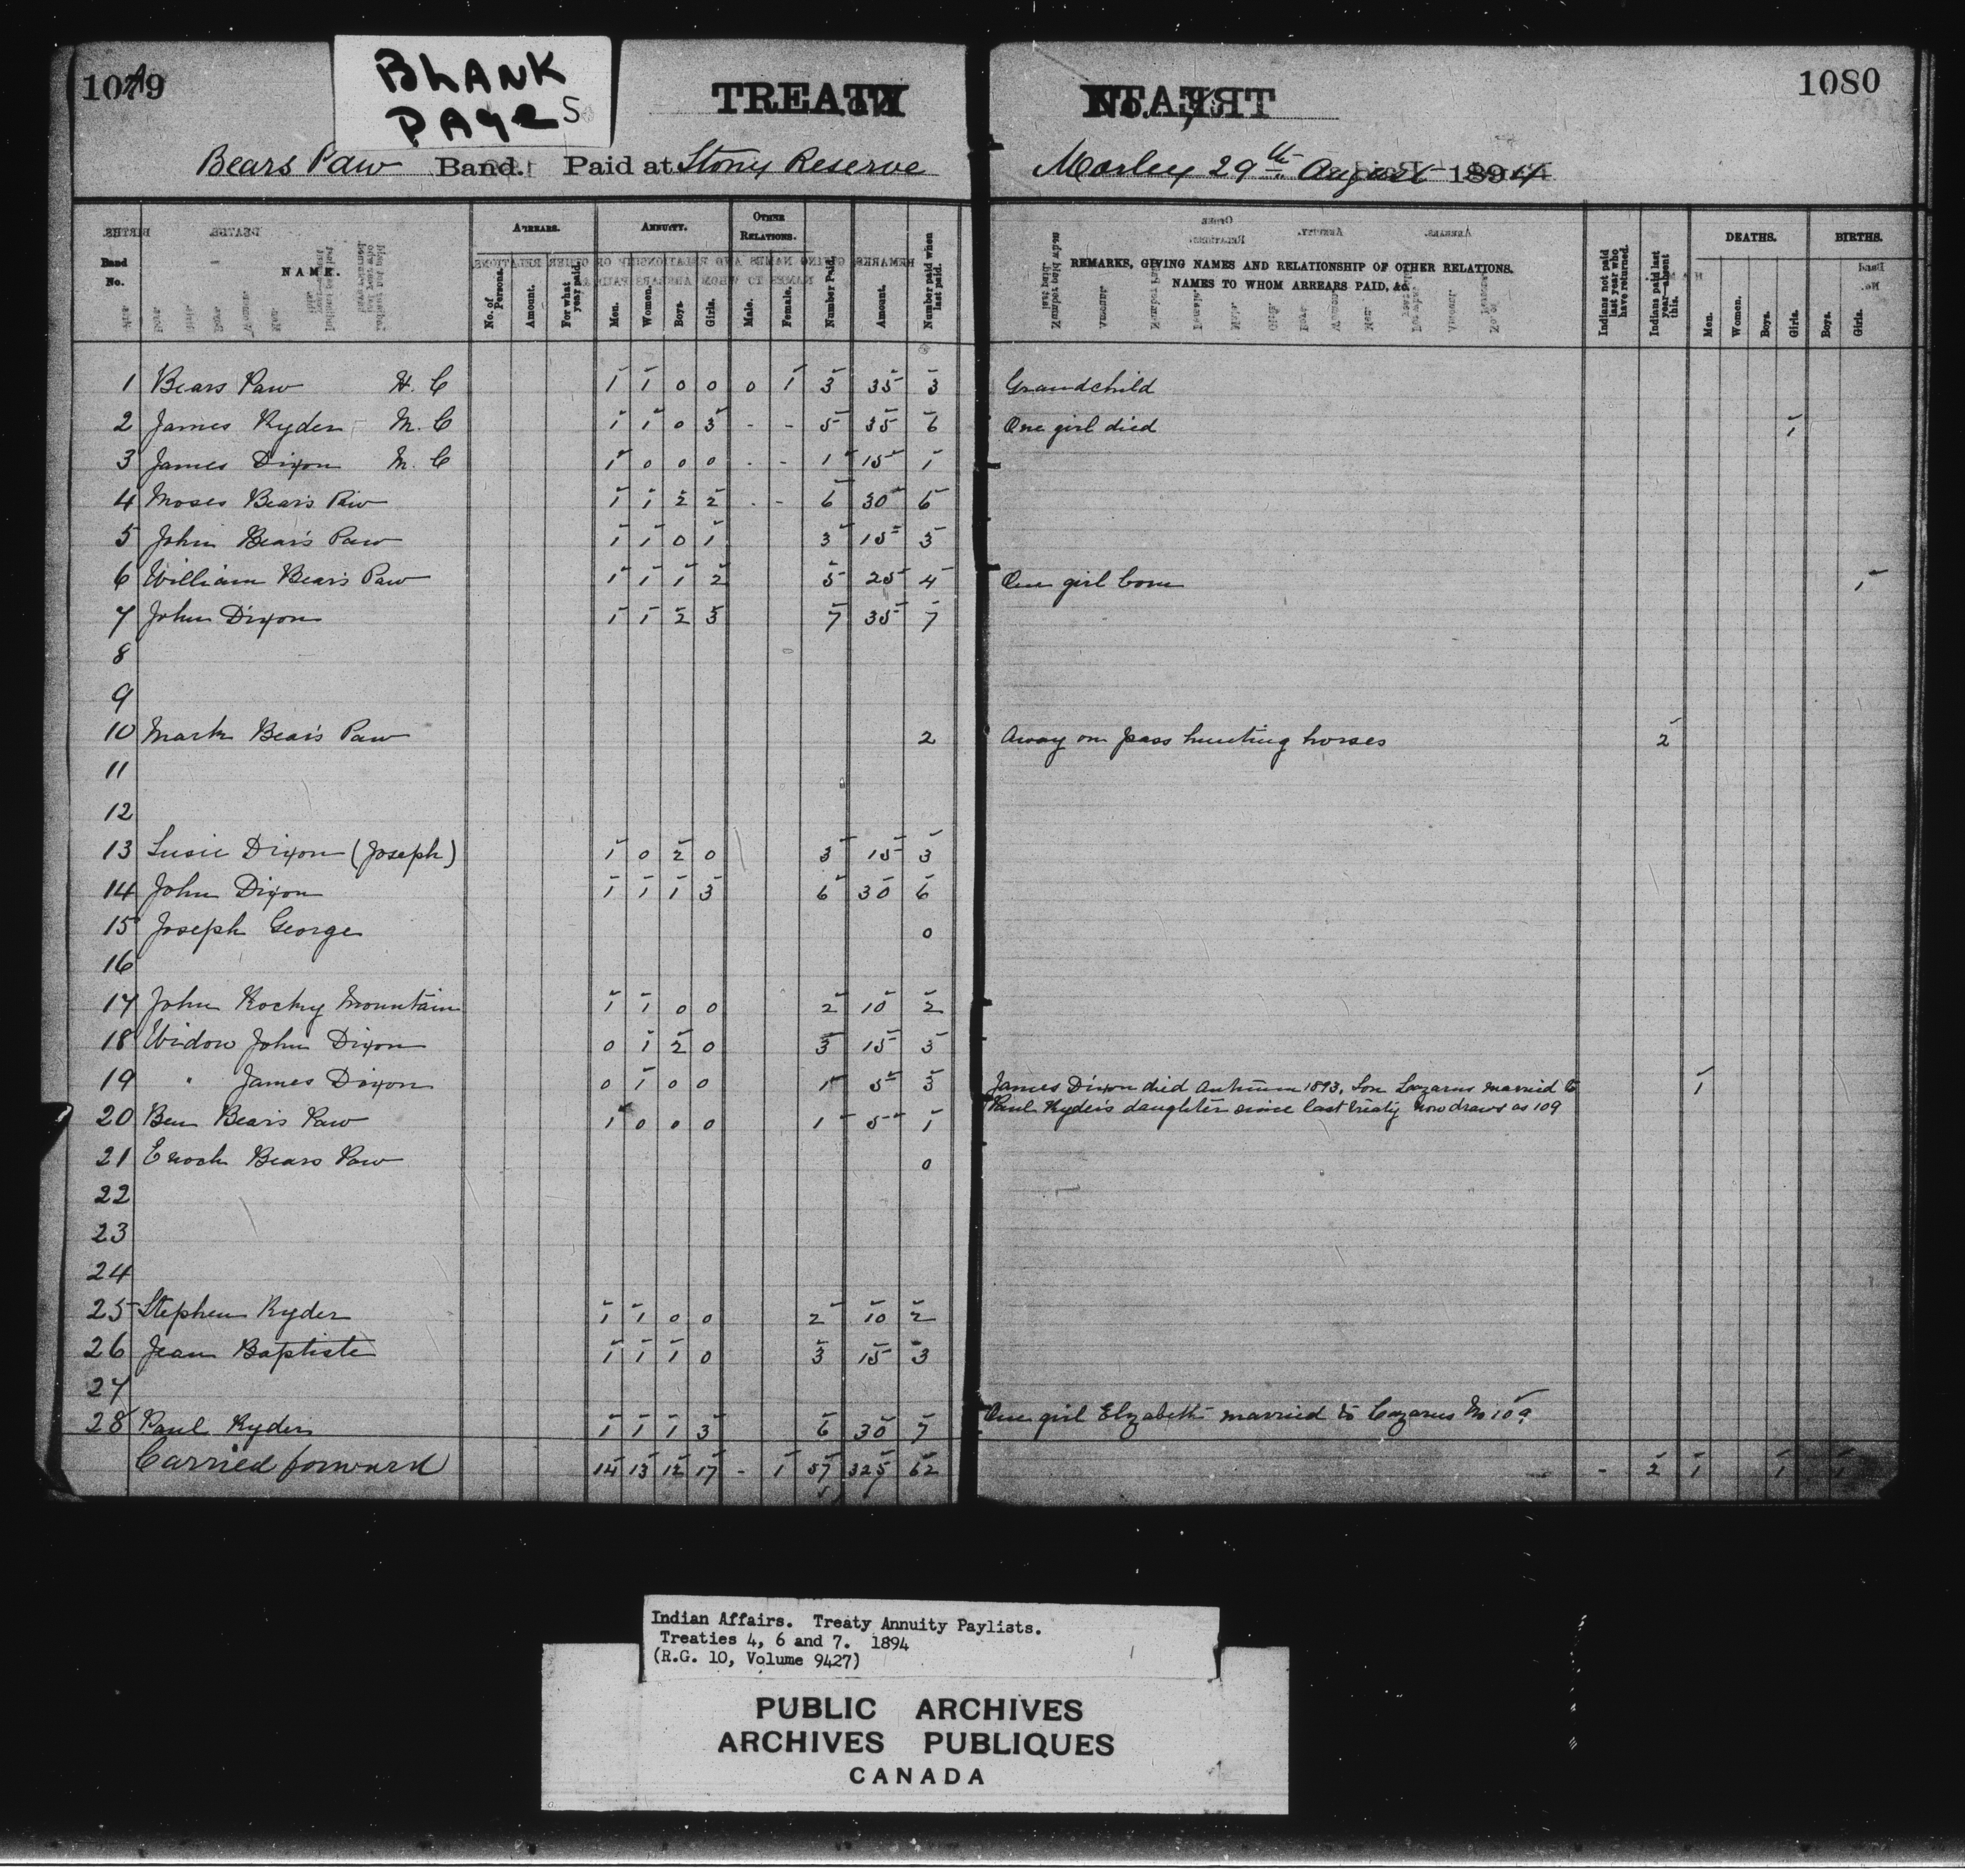 1079
BLANK
PAGES
TREATY
1080
Bears Paw Band. Paid at Stony Reserve
Morley 29th August 1894
Band No.
NAME.
ARREARS.
No. of Persons.
Amount.
For what year paid.
ANNUITY.
Men.
Women.
Boys
Girls.
OTHER RELATIONS.
Male.
Female.
Number Paid.
Amount.
Number paid when last paid.
REMARKS, GIVING NAMES AND RELATIONSHIP OF OTHER RELATIONS.
NAMES TO WHOM ARREARS PAID, &c.
Indians not paid last year who have returned.
Indians paid last year—absent this.
DEATHS.
Men.
Women.
Boys.
Girls.
BIRTHS.
Boys.
Girls.
1 Bears Paw H. C 1 1 0 0 0 1 3 35 3 Grandchild
2 James Ryder M. C 1 1 0 3 - - 5 35 6 One girl died 1
3 James Dixon M. C 1 0 0 0 - - 1 15 1
4 Moses Bear's Paw 1 1 2 2 - - 6 30 6
5 John Bear's Paw 1 1 0 1 3 15 3
6 William Bear's Paw 1 1 1 2 5 25 4 One girl born 1
7 John Dixon 1 1 2 3 7 35 7
8
9
10 Mark Bear's Paw 2 Away on pass hunting horses 2
11
12
13 Susie Dixon (Joseph) 1 0 2 0 3 15 3
14 John Dixon 1 1 1 3 6 30 6
15 Joseph George 0
16
17 John Rocky Mountain 1 1 0 0 2 10 2
18 Widow John Dixon 0 1 2 0 3 15 3
19 " James Dixon 0 1 0 0 1 5 3 James Dixon died Autumn 1893, Son Lazarus married to 1
Paul Ryder's daughter since last treaty now draws as 109
20 Ben Bear's Paw 1 0 0 0 1 5 1
21 Enoch Bears Paw 0
22
23
24
25 Stephen Ryder 1 1 0 0 2 10 2
26 Jean Baptiste 1 1 1 0 3 15 3
27
28 Paul Ryder 1 1 1 3 6 30 7 One girl Elizabeth married to Lazarus No 109
Carried forward 14 13 12 17 - 1 57 325 62 - 2 1 1 1
Indian Affairs. Treaty Annuity Paylists.
Treaties 4, 6 and 7. 1894
(R.G. 10, Volume 9427)
PUBLIC ARCHIVES
ARCHIVES PUBLIQUES
CANADA